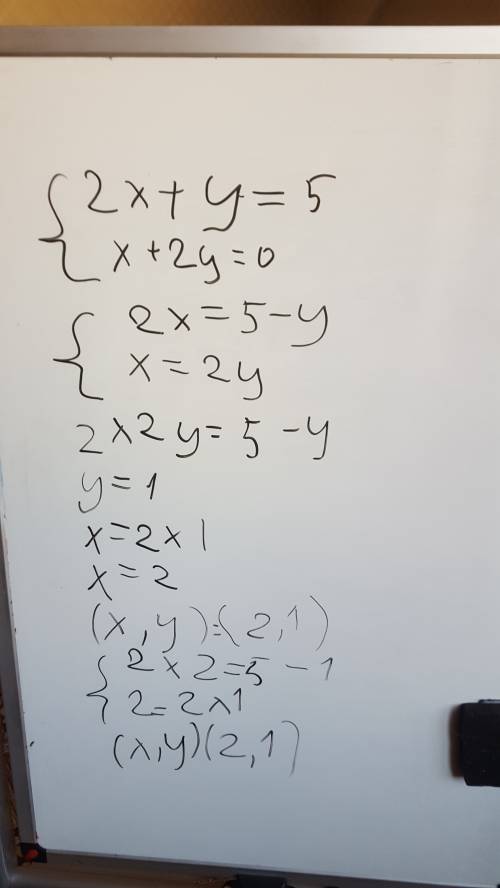 { 2x + y = 5
x + 2y = 0
{ 2x = 5 - y
x = 2y
2 × 2y = 5 - y
y = 1
x = 2 × 1
x = 2
(x, y) = (2, 1)
{ 2 × 2 = 5 - 1
2 = 2 × 1
(x, y) (2, 1)